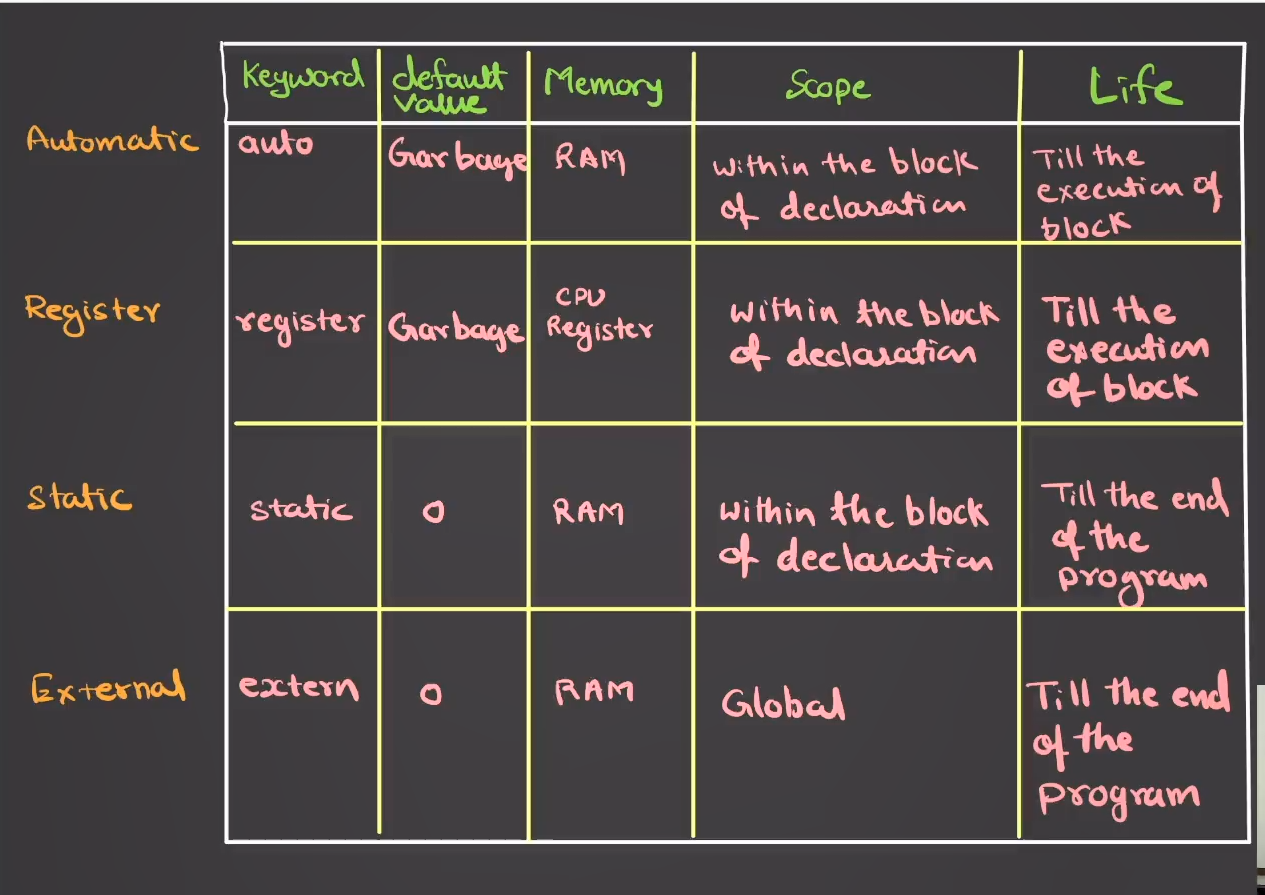 Keyword default value Memory Scope Life
Automatic auto Garbage RAM within the block of declaration Till the execution of block
Register register Garbage CPU Register within the block of declaration Till the execution of block
Static static 0 RAM within the block of declaration Till the end of the program
External extern 0 RAM Global Till the end of the program